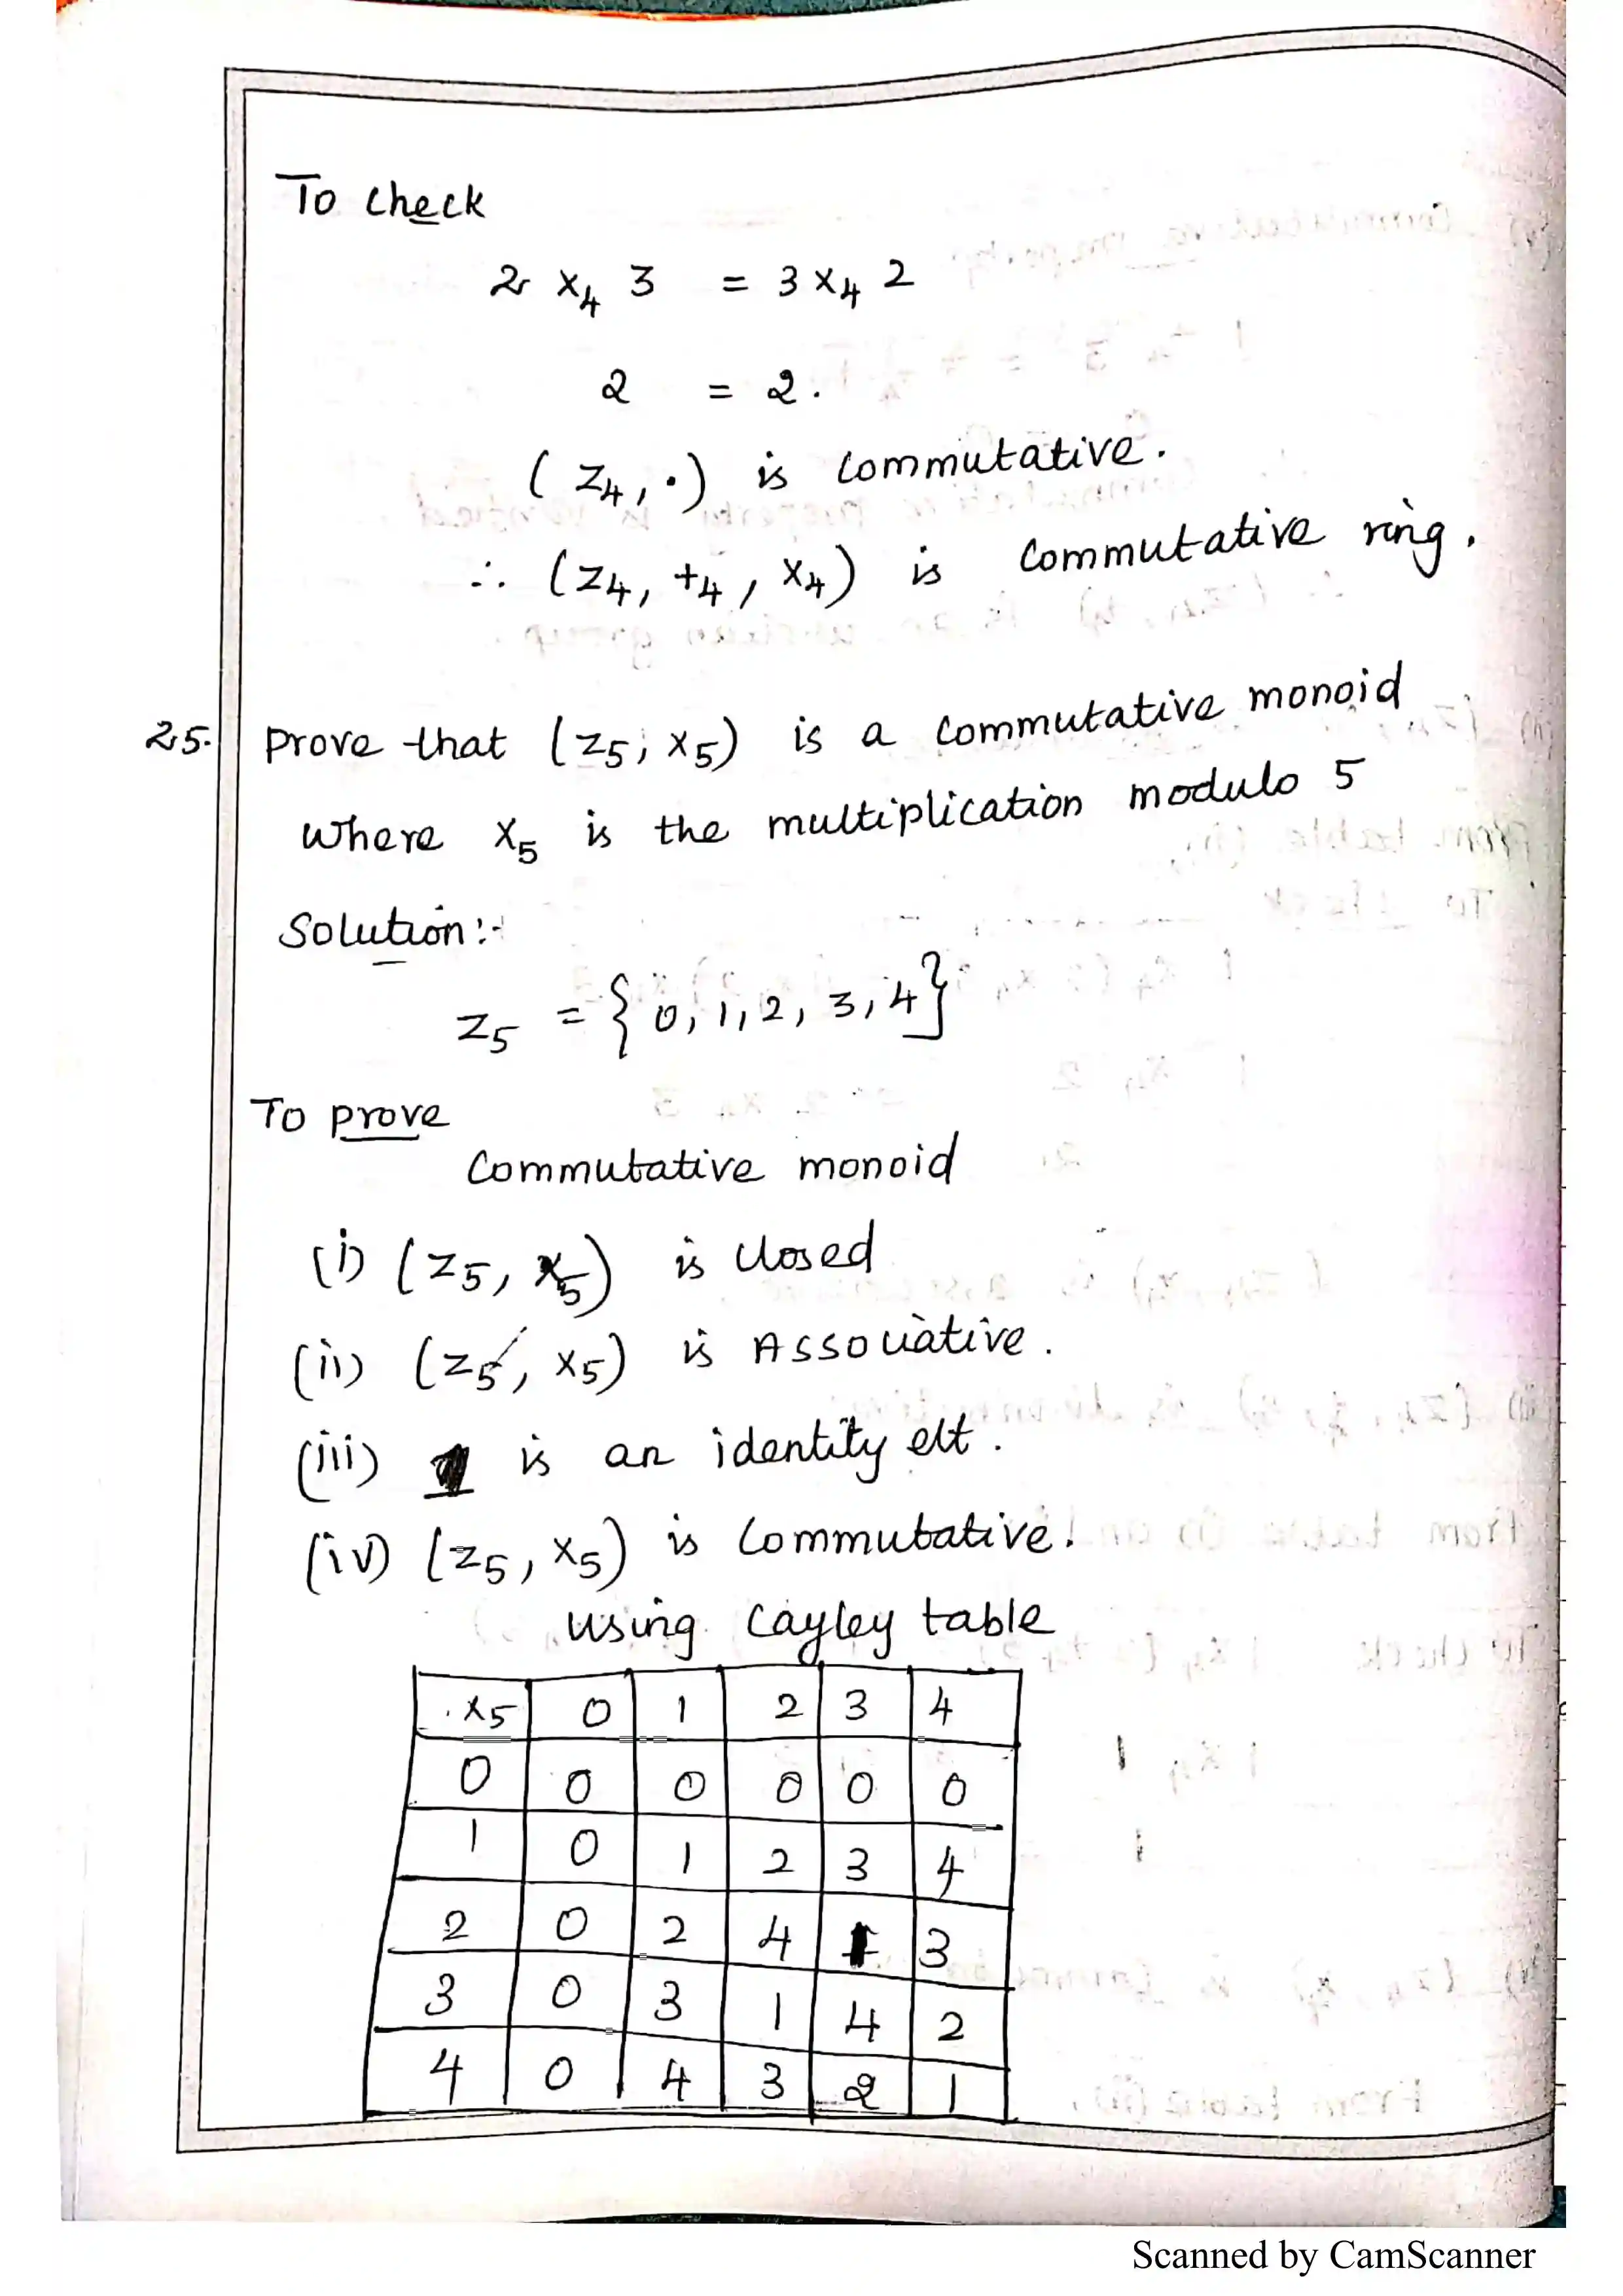 To check
2 ×₄ 3 = 3 ×₄ 2
2 = 2.
( Z₄, •) is commutative.
∴ (Z₄, +₄, ×₄) is commutative ring.
25. prove that (Z₅; ×₅) is a commutative monoid
where ×₅ is the multiplication modulo 5
Solution:-
Z₅ = {0, 1, 2, 3, 4}
To prove
Commutative monoid
(i) (Z₅, ×₅) is closed
(ii) (Z₅, ×₅) is Associative.
(iii) 1 is an identity elt.
(iv) (Z₅, ×₅) is commutative.
using Cayley table
×₅ 0 1 2 3 4
0 0 0 0 0 0
1 0 1 2 3 4
2 0 2 4 1 3
3 0 3 1 4 2
4 0 4 3 2 1
Scanned by CamScanner